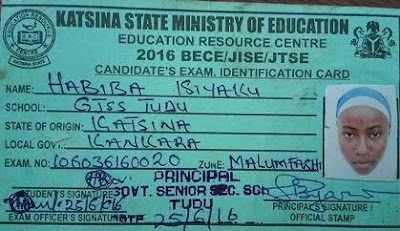 KATSINA STATE MINISTRY OF EDUCATION
EDUCATION RESOURCE CENTRE
2016 BECE/JISE/JTSE
CANDIDATE'S EXAM. IDENTIFICATION CARD
NAME: HABIBA ISIYAKU
SCHOOL: GJSS TUDU
STATE OF ORIGIN: KATSINA
LOCAL GOVT.: KANKARA
EXAM. NO. 106036160020 ZONE: MALUMFASHI
PRINCIPAL
STUDENT'S SIGNATURE GOVT. SENIOR SEC. SCH PRINCIPAL'S SIGNATURE
25/6/16 TUDU
EXAM OFFICER'S SIGNATURE DATE 25/6/16 OFFICIAL STAMP